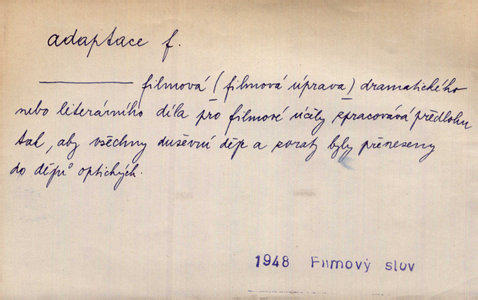 adaptace f.
filmová (filmová úprava) dramatického
nebo literárního díla pro filmové účely zpracovává předlohu
tak, aby všechny duševní děje a svazy byly přeneseny
do dějů optických.
1948 Filmový slov